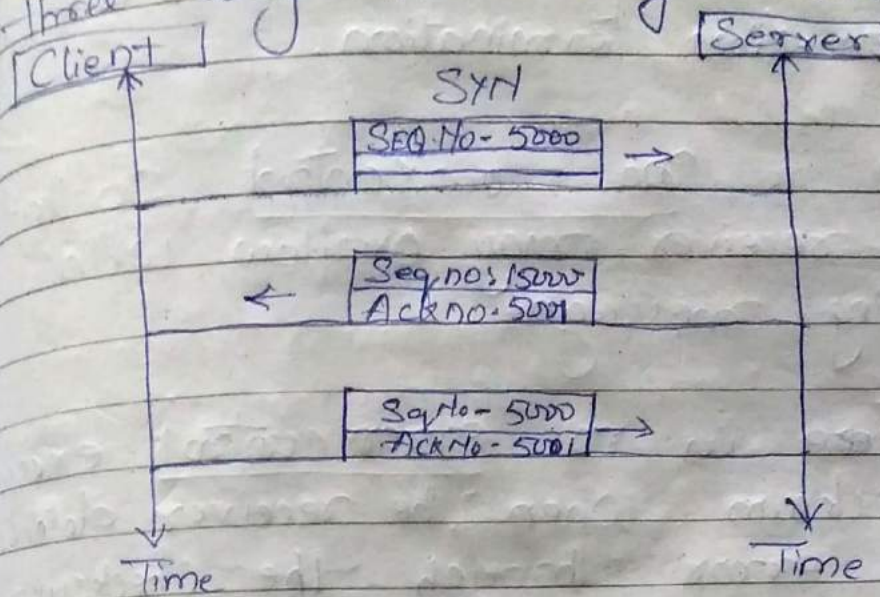 Three
Client
Server
SYN
SEQ.No- 5000
Seq,no: 15000
Ack no. 5001
Sq No- 5000
ACK No- 5001
Time
Time